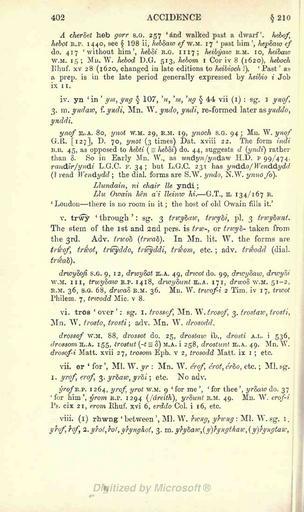 402 ACCIDENCE § 210
A cherbet heb gorr R.G. 257 'And walked past a dwarf'. hebof,
hebot R.P. 1440, see § 198 ii, hebðaw ef W.M. 17 'past him', hepðaw ef
do. 417 'without him', hebði R.G. 1117; heibyaw R.M. 10, heibaw
W.M. 15; Mn. W. hebod D.G. 513, hebom 1 Cor iv 8 (1620), heboch
Rhuf. xv 28 (1620, changed in late editions to heibioch!). 'Past' as
a prep. is in the late period generally expressed by heibio i Job
ix 11.
iv. yn 'in' ym, yng § 107, 'n, 'm, 'ng § 44 vii (1): sg. 1 ynof,
3. m. yndaw, f. yndi, Mn. W. yndo, yndi, re-formed later as ynddo,
ynddi.
ynof E.A. 80, ynot W.M. 29, R.M. 19, ynoch S.G. 94; Mn. W. ynof
G.R. [127], D. 70, ynot (3 times) Dat. xviii 22. The form indi
B.B. 45, as opposed to hebti (≡ hebði) do. 44, suggests d (yndi) rather
than ð. So in Early Mn. W., as undyn/yndaw H.D. P 99/474,
randir/yndi L.G.C. F. 34; but L.G.C. 231 has ynddo/Wenddydd
(I read Wendydd); the dial. forms are S.W. yndo, N.W. ynno/o).
Llundain, ni chair lle yndi;
Llu Owain hên a'i lleinw hi.—G.T., E. 134/167 R.
'London—there is no room in it; the host of old Owain fills it.'
v. trwy 'through': sg. 3 trwyðaw, trwyði, pl. 3 trwyðunt.
The stem of the 1st and 2nd pers. is trw-, or trwyð- taken from
the 3rd. Adv. trwoð (trwað). In Mn. lit. W. the forms are
trwof, trwot, trwyddo, trwyddi, trwom, etc.; adv. trwodd (dial.
trwadd).
drwyðof S.G. 9, 12, drwyðot E.A. 49, drwot do. 99, drwyðaw, drwyði
W.M. 111, trwyðaw R.P. 1418, drwyðunt E.A. 171, drwoð W.M. 51-2,
R.M. 36, S.G. 68, drwað R.M. 36. Mn. W. trwof-i 2 Tim. iv 17, trwot
Philem. 7, trwodd Mic. v 8.
vi. tros 'over': sg. 1. trossof, Mn. W. trosof, 3. trostaw, trosti,
Mn. W. trosto, trosti; adv. Mn. W. drosodd.
drossof W.M. 88, drossot do. 25, drostaw ib., drosti A.L. i 536,
drossom E.A. 155, trostut (-t ≡ ð) M.A. i 258, drostunt E.A. 49. Mn. W.
drosof-i Matt. xxvii 27, trosom Eph. v 2, trosodd Matt. ix 1; etc.
vii. er 'for', Ml. W. yr: Mn. W. erof, erot, erðo, etc.; Ml. sg.
1. yrof, erof, 3. yrðaw, yrði; etc. No adv.
yrof R.P. 1264, yrof, yrot W.M. 9 'for me', 'for thee' yrðaw do. 37
'for him', yrom R.P. 1294 (/areith), yrðunt R.M. 49. Mn. W. erof-i
Ps. cix 21, erom Rhuf. xvi 6, erddo Col. i 16, etc.
viii. (1) rhwng 'between', Ml. W. rwng, yrwng: Ml. W. sg. 1.
Digitized by Microsoft®